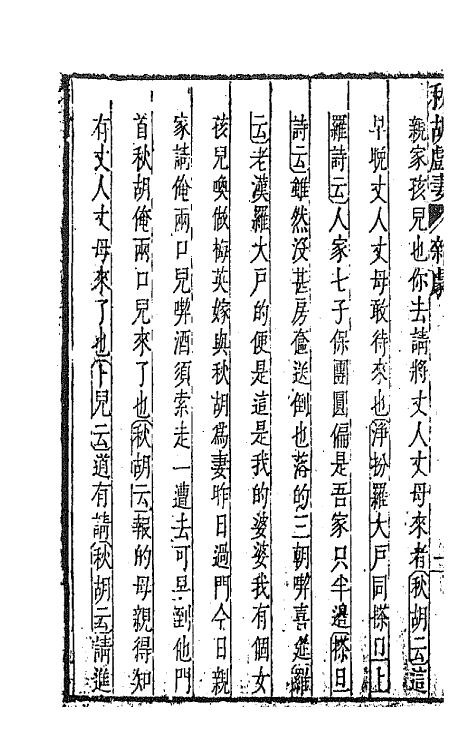 秋胡戲妻 雜劇
親家孩兒也你去請將丈人丈母來者秋胡云這
早晚丈人丈母敢待來也淨扮羅大戶同搽旦上
羅詩云人家七子保團圓偏是吾家只半邊搽旦
詩云雖然沒甚房奩送倒也落的三朝喫喜筵羅
云老漢羅大戶的便是這是我的婆婆我有個女
孩兒喚做梅英嫁與秋胡爲妻昨日過門今日親
家請俺兩口兒喫酒須索走一遭去可早到他門
首秋胡俺兩口兒來了也秋胡云報的母親得知
有丈人丈母來了也卜兒云道有請秋胡云請進